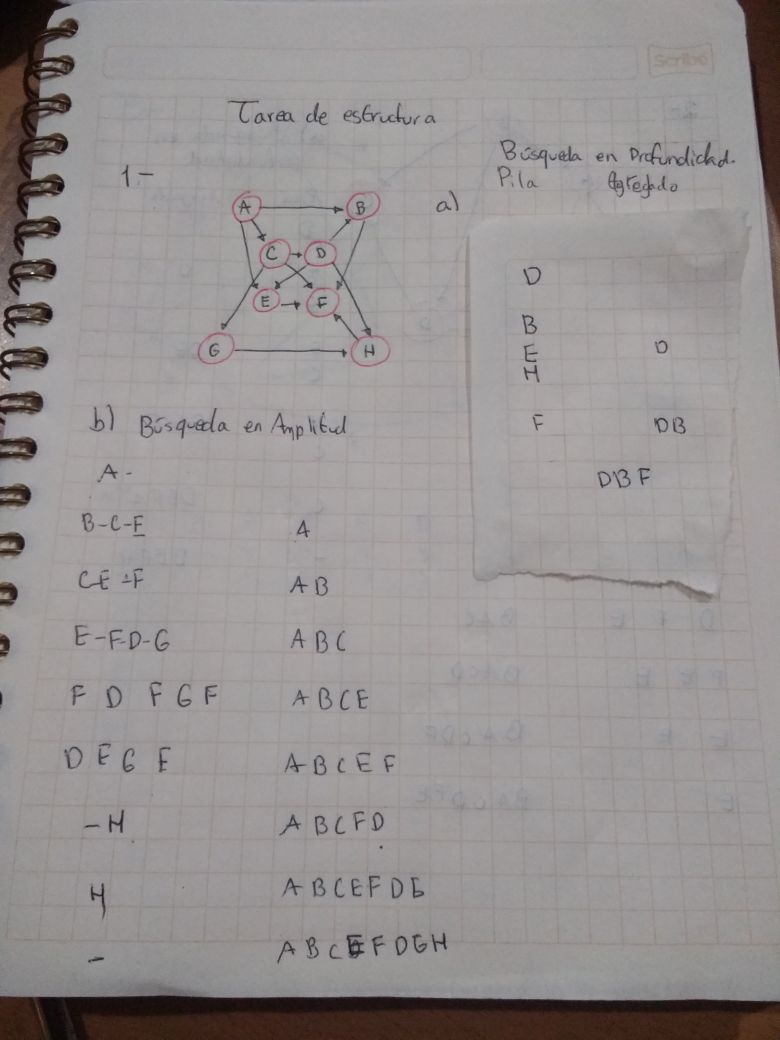 Scribe
Tarea de estructura
Búsqueda en Profundidad.
1-
a)
Pila Agregado
A B
C D
E F
G H
D
B
E D
H
F DB
DBF
b) Búsqueda en Amplitud
A-
B-C-E A
CE-F AB
E-F-D-G ABC
F D F G F ABCE
D F G E ABCEF
-H ABCFD
H ABCEFDG
- ABCEFDGH